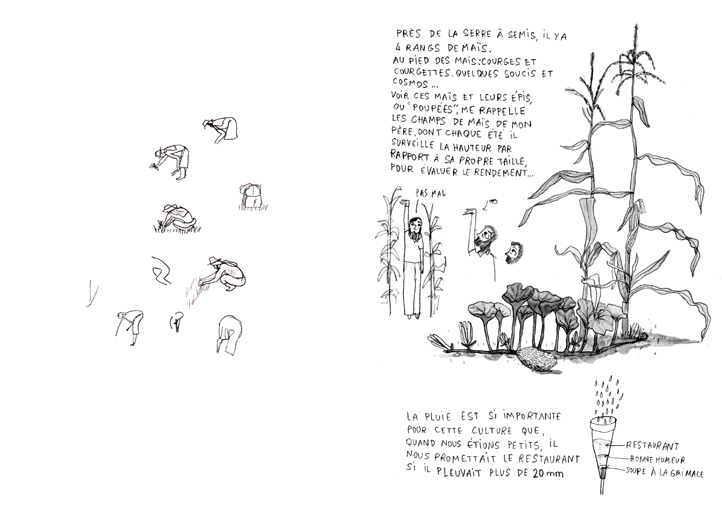 PRÈS DE LA SERRE À SEMIS, IL Y A
4 RANGS DE MAÏS.
AU PIED DES MAÏS: COURGES ET
COURGETTES. QUELQUES SOUCIS ET
COSMOS...
VOIR CES MAÏS ET LEURS ÉPIS,
OU "POUPÉES", ME RAPPELLE
LES CHAMPS DE MAÏS DE MON
PÈRE, DONT CHAQUE ÉTÉ IL
SURVEILLE LA HAUTEUR PAR
RAPPORT À SA PROPRE TAILLE,
POUR ÉVALUER LE RENDEMENT...
PAS MAL
LA PLUIE EST SI IMPORTANTE
POUR CETTE CULTURE QUE,
QUAND NOUS ÉTIONS PETITS, IL
NOUS PROMETTAIT LE RESTAURANT
SI IL PLEUVAIT PLUS DE 20 mm
RESTAURANT
BONNE HUMEUR
SOUPE À LA GRIMACE